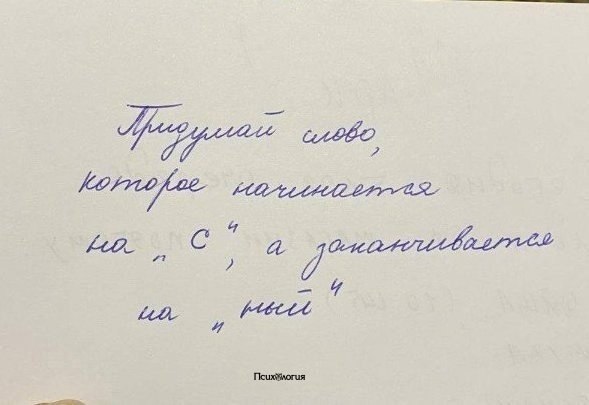 Придумай слово,
которое начинается
на „С“, а заканчивается
на „ный“
Психология